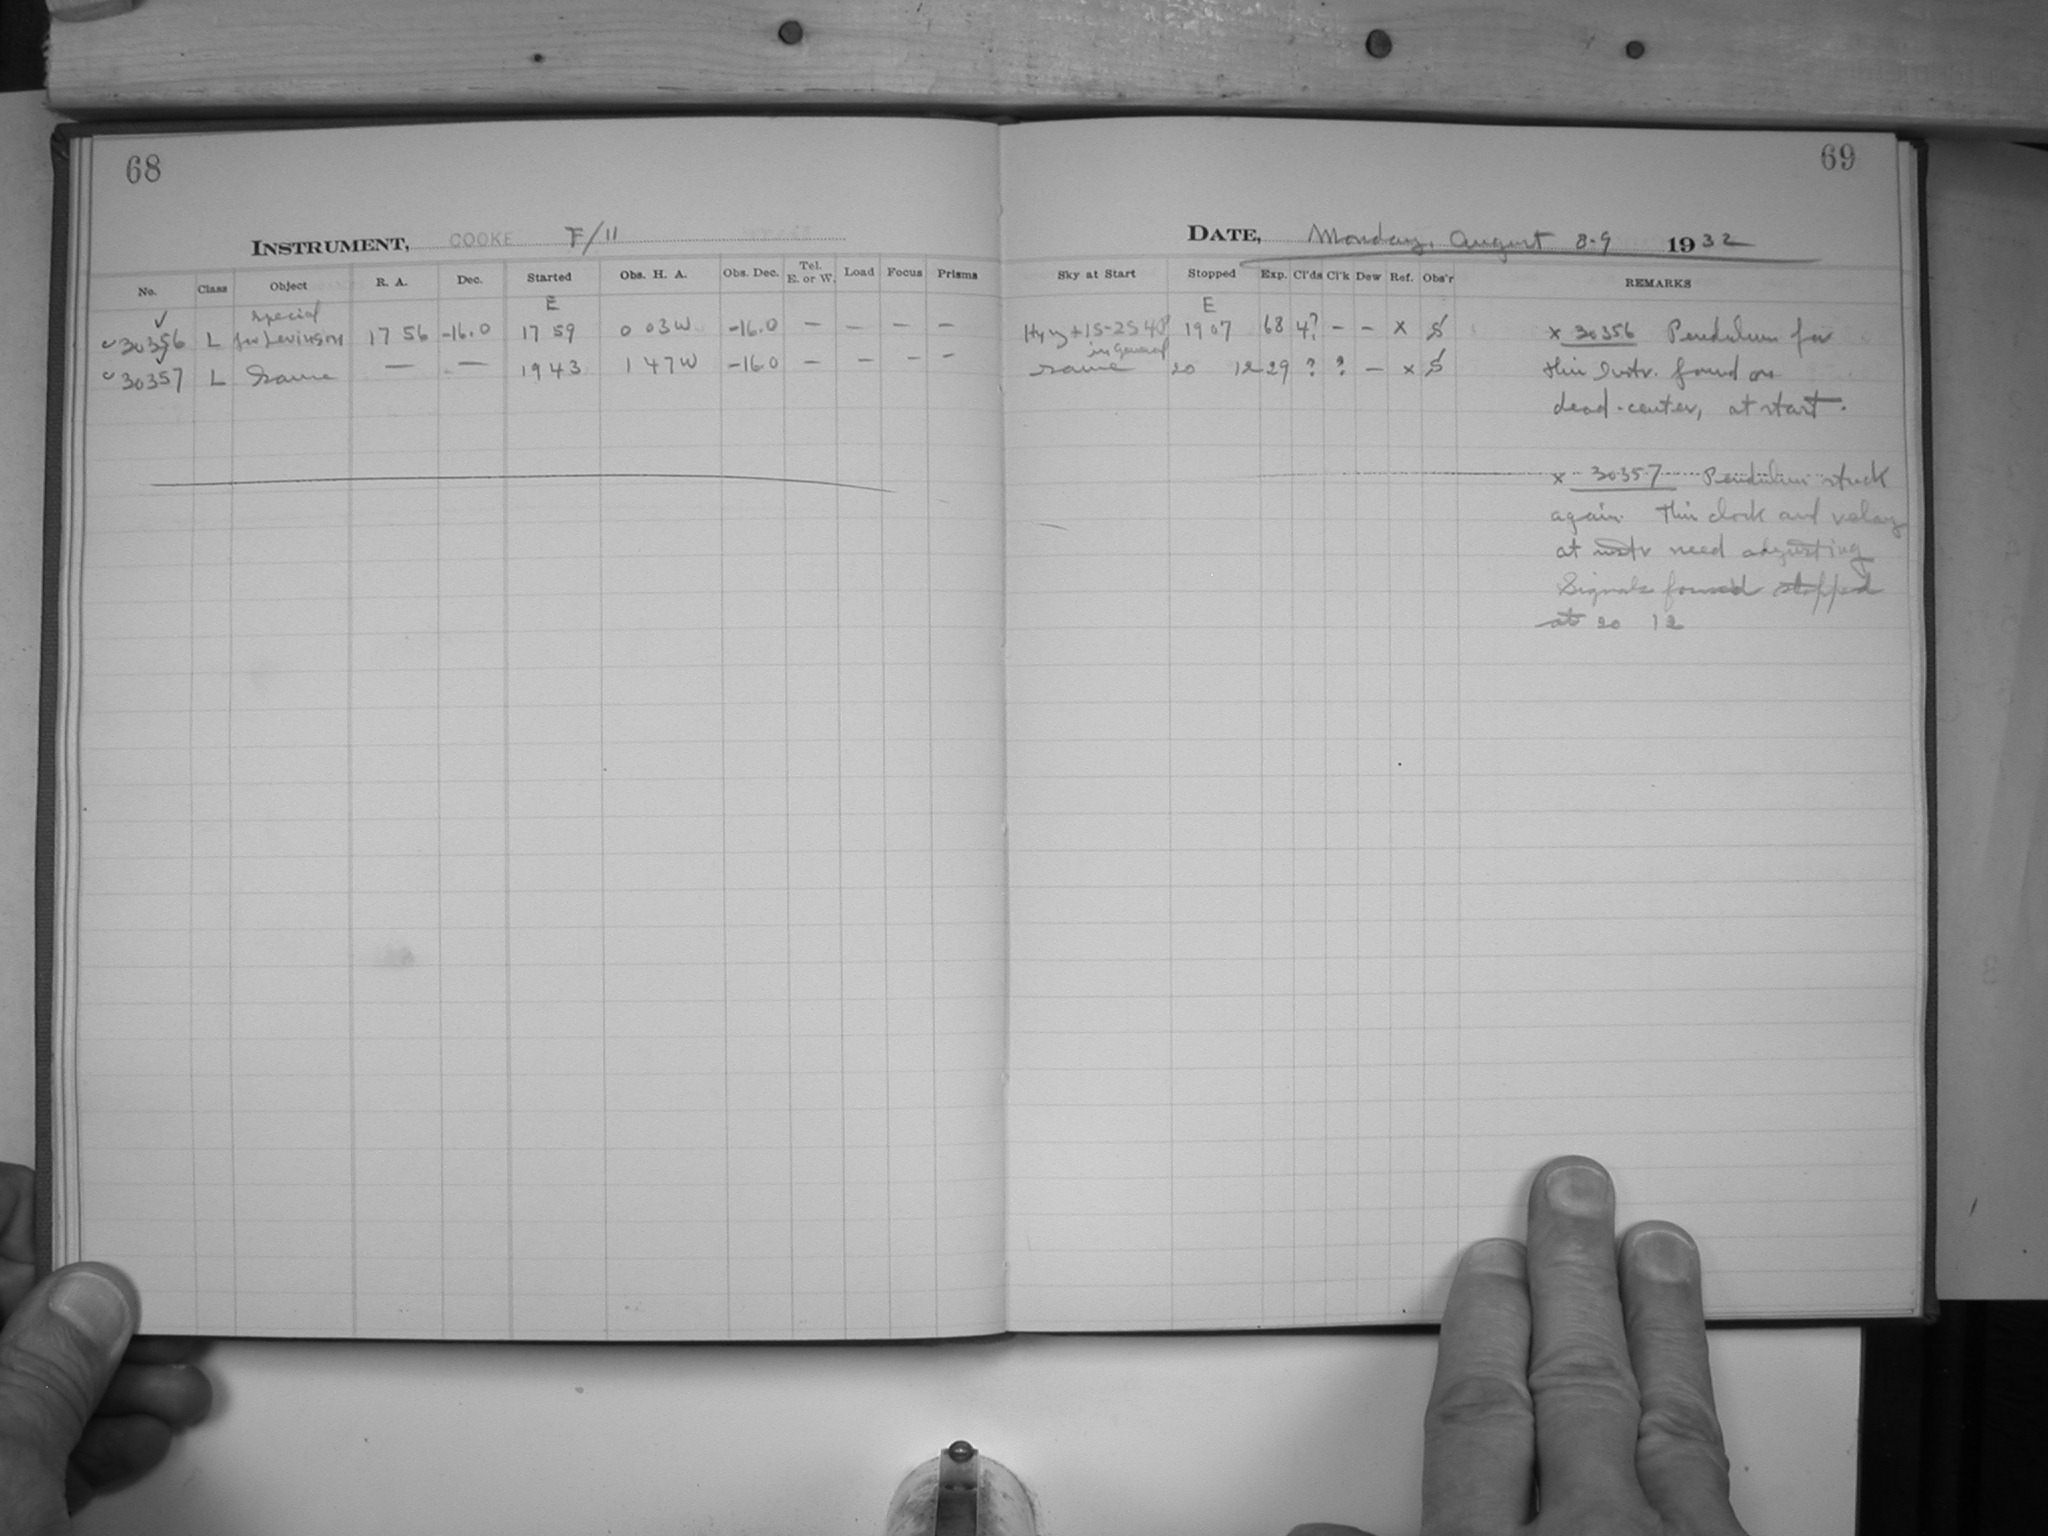 68
INSTRUMENT, COOKE F/11
No. Class Object R. A. Dec. Started Obs. H. A. Obs. Dec. Tel. E. or W. Load Focus Prisms
special E
30356 L for Levinson 17 56 -16.0 17 59 0 03W -16.0 — — — —
30357 L Same — — 19 43 1 47W -16.0 — — — —
69
DATE, Monday, August 8-9 1932
Sky at Start Stopped Exp. Cl'ds Cl'k Dew Ref. Obs'r REMARKS
E
+15-25 19 07 68 4? — — x
in General
same 20 12 29 ? ? — x
x 30356 Pendulum for
this Instr. found on
dead-center, at start.
x 30357 Pendulum stuck
again. This clock and relay
at instr need adjusting
Signals found stopped
at 20 12